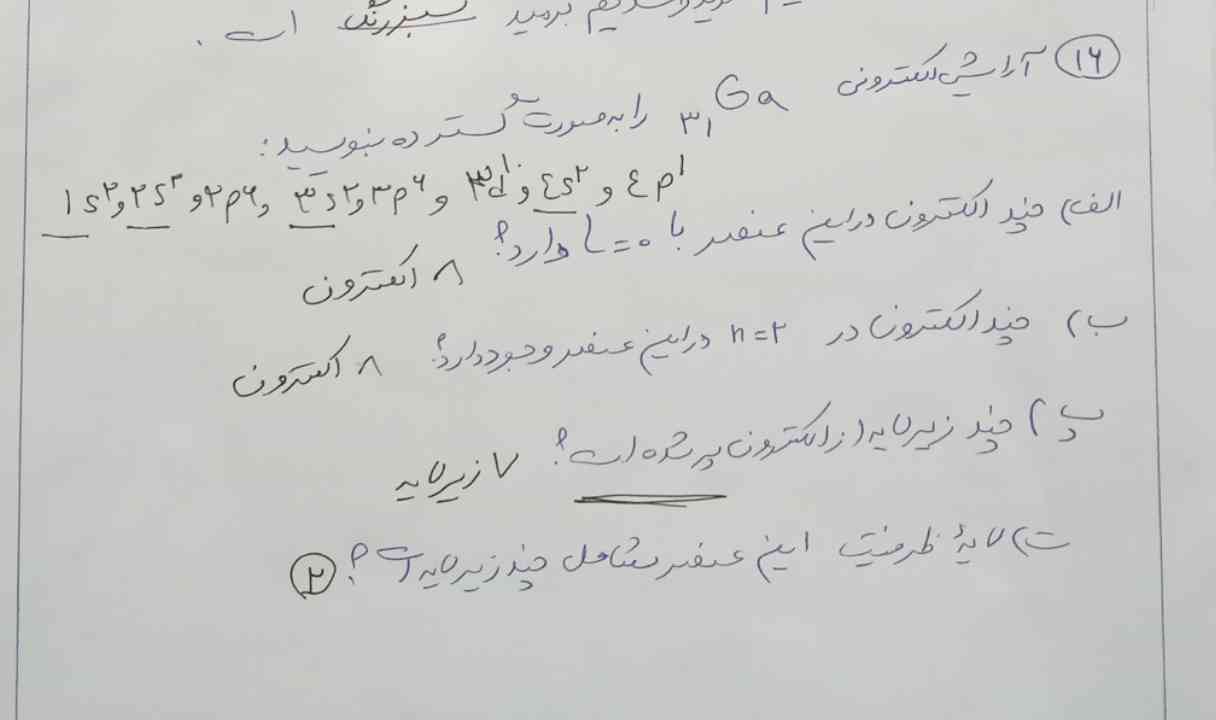 برمید سبز رنگ است .
۱۶ آرایش الکترونی ۳۱Ga را به صورت گسترده بنویسید:
1s۲ و ۲s۲ و ۲p۶ و ۳s۲ و ۳p۶ و ۳d۱۰ و ٤s۲ و ٤p۱
الف) چند الکترون در این عنصر با L=۰ دارد؟ ۸ الکترون
ب) چند الکترون در n=۲ در این عنصر وجود دارد؟ ۸ الکترون
پ) چند زیرلایه از الکترون پر شده است؟ ۷ زیرلایه
ت) لایهٔ ظرفیت این عنصر شامل چند زیرلایه است؟ ۲